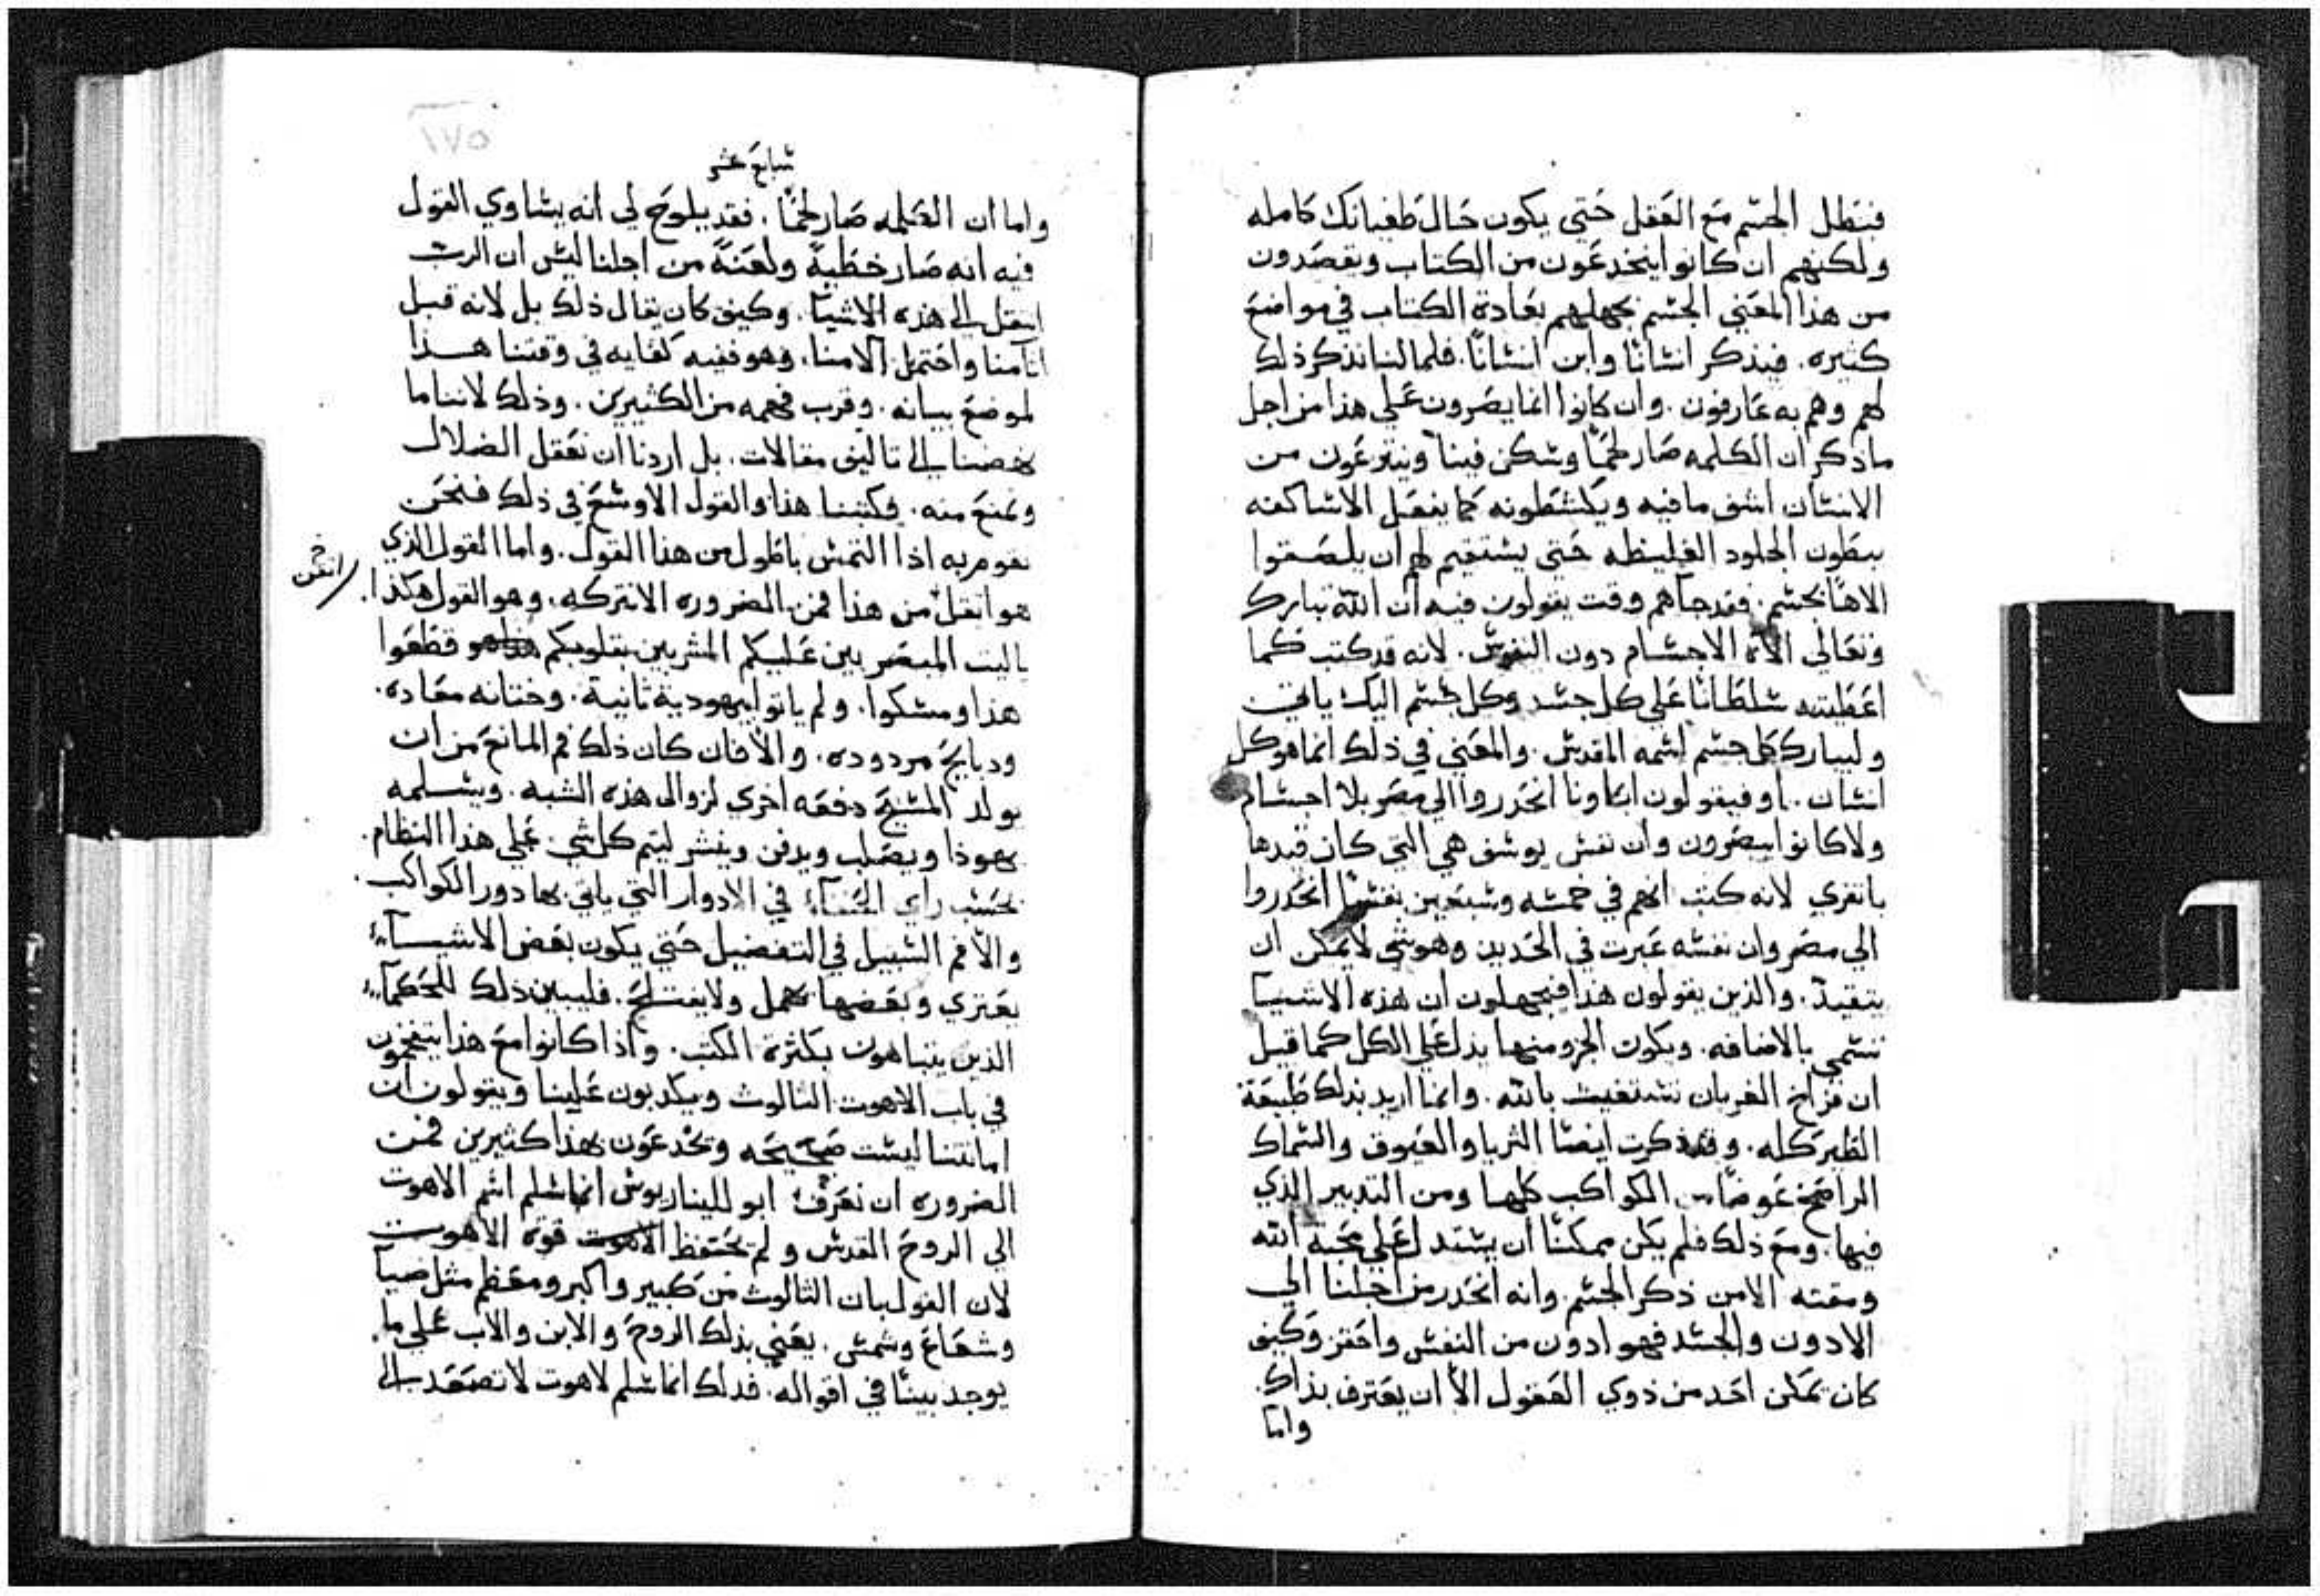 فنبطل الجسم مع العقل حتي يكون حال طغيانك كامله
ولكنهم ان كانوا ينخدعون من الكتاب ويقصدون
من هذا المعني الجسم بجهلهم بعادة الكتاب في مواضع
كثيره. فيذكر انسانًا وابن انسانًا. فلما لنا نذكر ذلك
لهم وهم به عارفون. وان كانوا انما يصرون علي هذا من اجل
ما ذكر ان الكلمه صار لحمًا وسكن فينا وينزعون من
الانسان اشف ما فيه ويكشطونه كما يفعل الاساكفه
ببطون الجلود الغليظه حتي يستقيم لهم ان يلصقوا
الاهًا بجسم. فقد جآهم وقت يقولون فيه ان الله تبارك
وتعالي الاه الاجسام دون النفوس. لانه قد كتب كما
اعطيته سلطانًا علي كل جسد وكل جسم اليك ياتي
وليبارك كل جسم اسمه القدس. والمعني في ذلك انما هو كل
انسان. او فيقولون ابكاونا انحدروا الي مصر بلا اجسام
ولا كانوا يبصرون وان نفس يوسف هي التي كان قيدها
بانفري لانه كتب انهم في خمسه وسبعين نفسًا انحدروا
الي مصر وان نفسه عبرت في الحديد وهو شي لا يمكن ان
يتقيد. والذين يقولون هذا فيجهلون ان هذه الاشيآ
تسمي بالاضافه. ويكون الجزو منها يدل علي الكل كما قيل
ان فراخ الغربان تستغيث بالله. وانما اريد بذلك طبيعة
الطير كله. وقد ذكرت ايضًا الثريا والعيوق والسماك
الرامح عوضًا من الكواكب كلها ومن التدبير الذي
فيها. ومع ذلك فلم يكن ممكنًا ان يستدل علي محبة الله
ومقته الا من ذكر الجسم. وانه انحدر من اجلنا الي
الادون والجسد فهو ادون من النفس واحقر وكيف
كان يمكن احد من ذوي العقول الا ان يعترف بذاك.
واما
١٧٥
سابع عشر
واما ان الكلمه صار لحمًا. فقد يلوح لي انه يساوي القول
فيه انه صار خطيةً ولعنةً من اجلنا ليس ان الرب
انتقل الي هذه الاشيآ. وكيف كان يقال ذلك بل لانه قبل
اثامنا واحتمل الامنا. وهو ففيه كفايه في وقتنا هذا
لموضع بيانه. وقرب فهمه من الكثيرين. وذلك لاننا ما
نهضنا الي تاليف مقالات. بل اردنا ان نعقل الضلال
ونمنع منه. وكتبنا هذا والقول الاوسع في ذلك فنحن
نقوم به اذا التمس باطول من هذا القول. واما القول الذي
هو اثقل من هذا فمن الضروره الا نتركه. وهو القول هكذا.
ياليت المبصرين عليكم المثربين بقلوبكم هو قطعوا
هذا ومسكوا. ولم ياتوا بيهودية ثانية. وختانه معاده.
ودبايح مردوده. والا فان كان ذلك فم المانع من ان
يولد المسيح دفعه اخري لزوال هذه الشبه. ويسلمه
يهوذا ويصلب ويدفن وينشر ليتم كل شي علي هذا النظام.
بحسب راي الحنفآء في الادوار التي ياتي بها دور الكواكب.
والا فم السبيل في التفضيل حتي يكون بعض الاشيآء
يعتزي وبعضها يهمل ولا يفتلح. فليبين ذلك للحكمآء
الذين يتباهون بكثرة الكتب. واذا كانوا مع هذا ينتفخون
في باب الاهوت الثالوث ويكدبون علينا ويقولون ان
امانتنا ليست صحيحه ويخدعون بهذا كثيرين فمن
الضروره ان نعرف ابولليناريوس انما سلم اسم الاهوت
الي الروح القدس ولم يحتفظ قوة الاهوت
لان القول بان الثالوث من كبير واكبر ومعظم مثل ضيآ
وشعاع وشمس. يعني بذلك الروح والابن والاب علي ما
يوجد بينًا في اقواله. فدلك انما سلم لاهوت لا تصعد الي